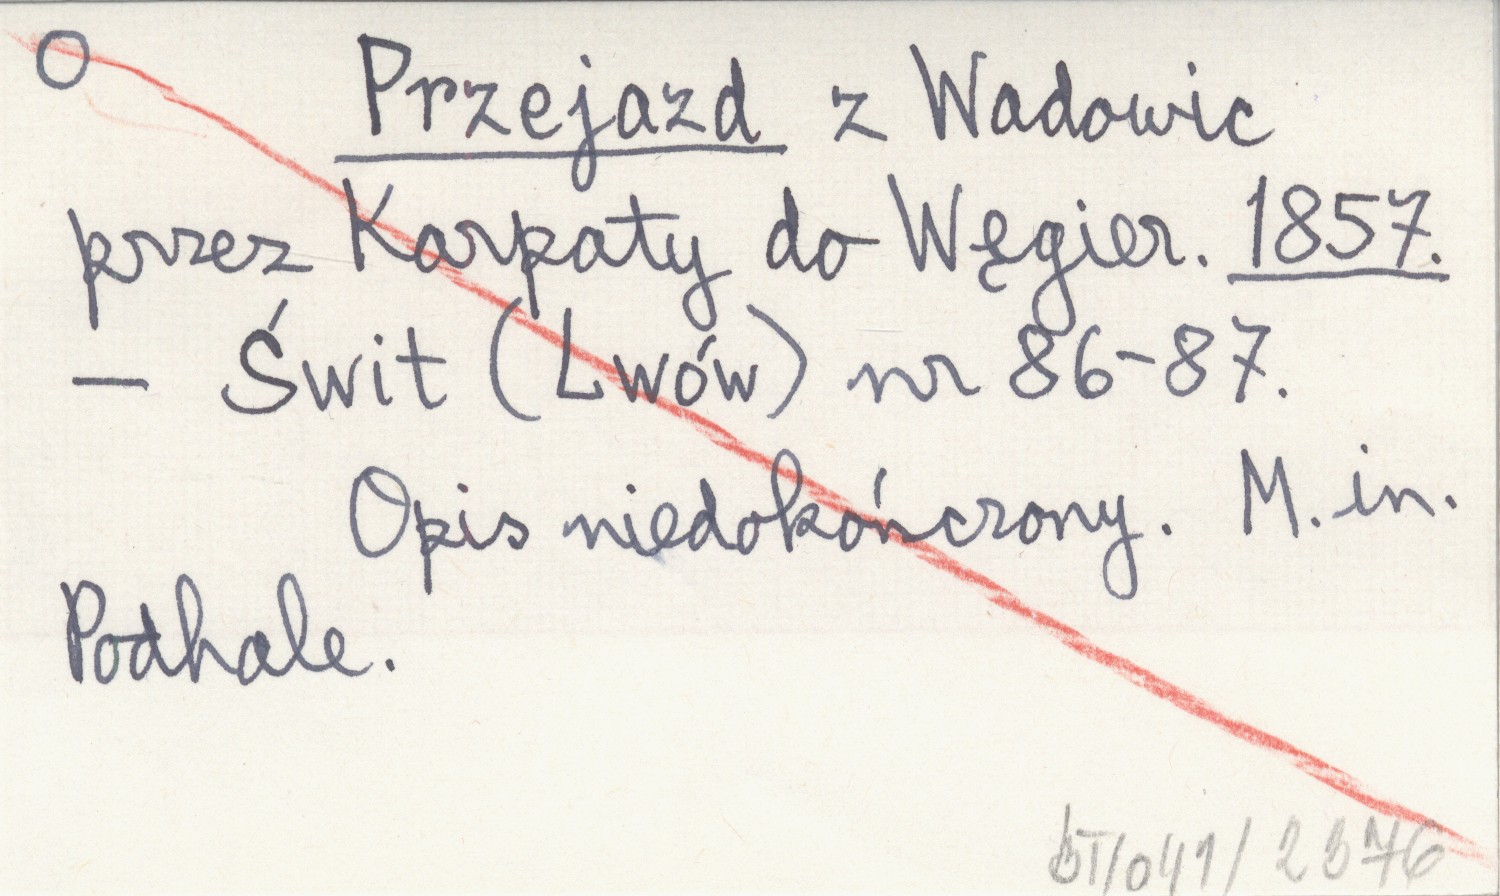 O Przejazd z Wadowic
przez Karpaty do Węgier. 1857.
— Świt (Lwów) nr 86-87.
Opis niedokończony. M. in.
Podhale.
BT/041/2376